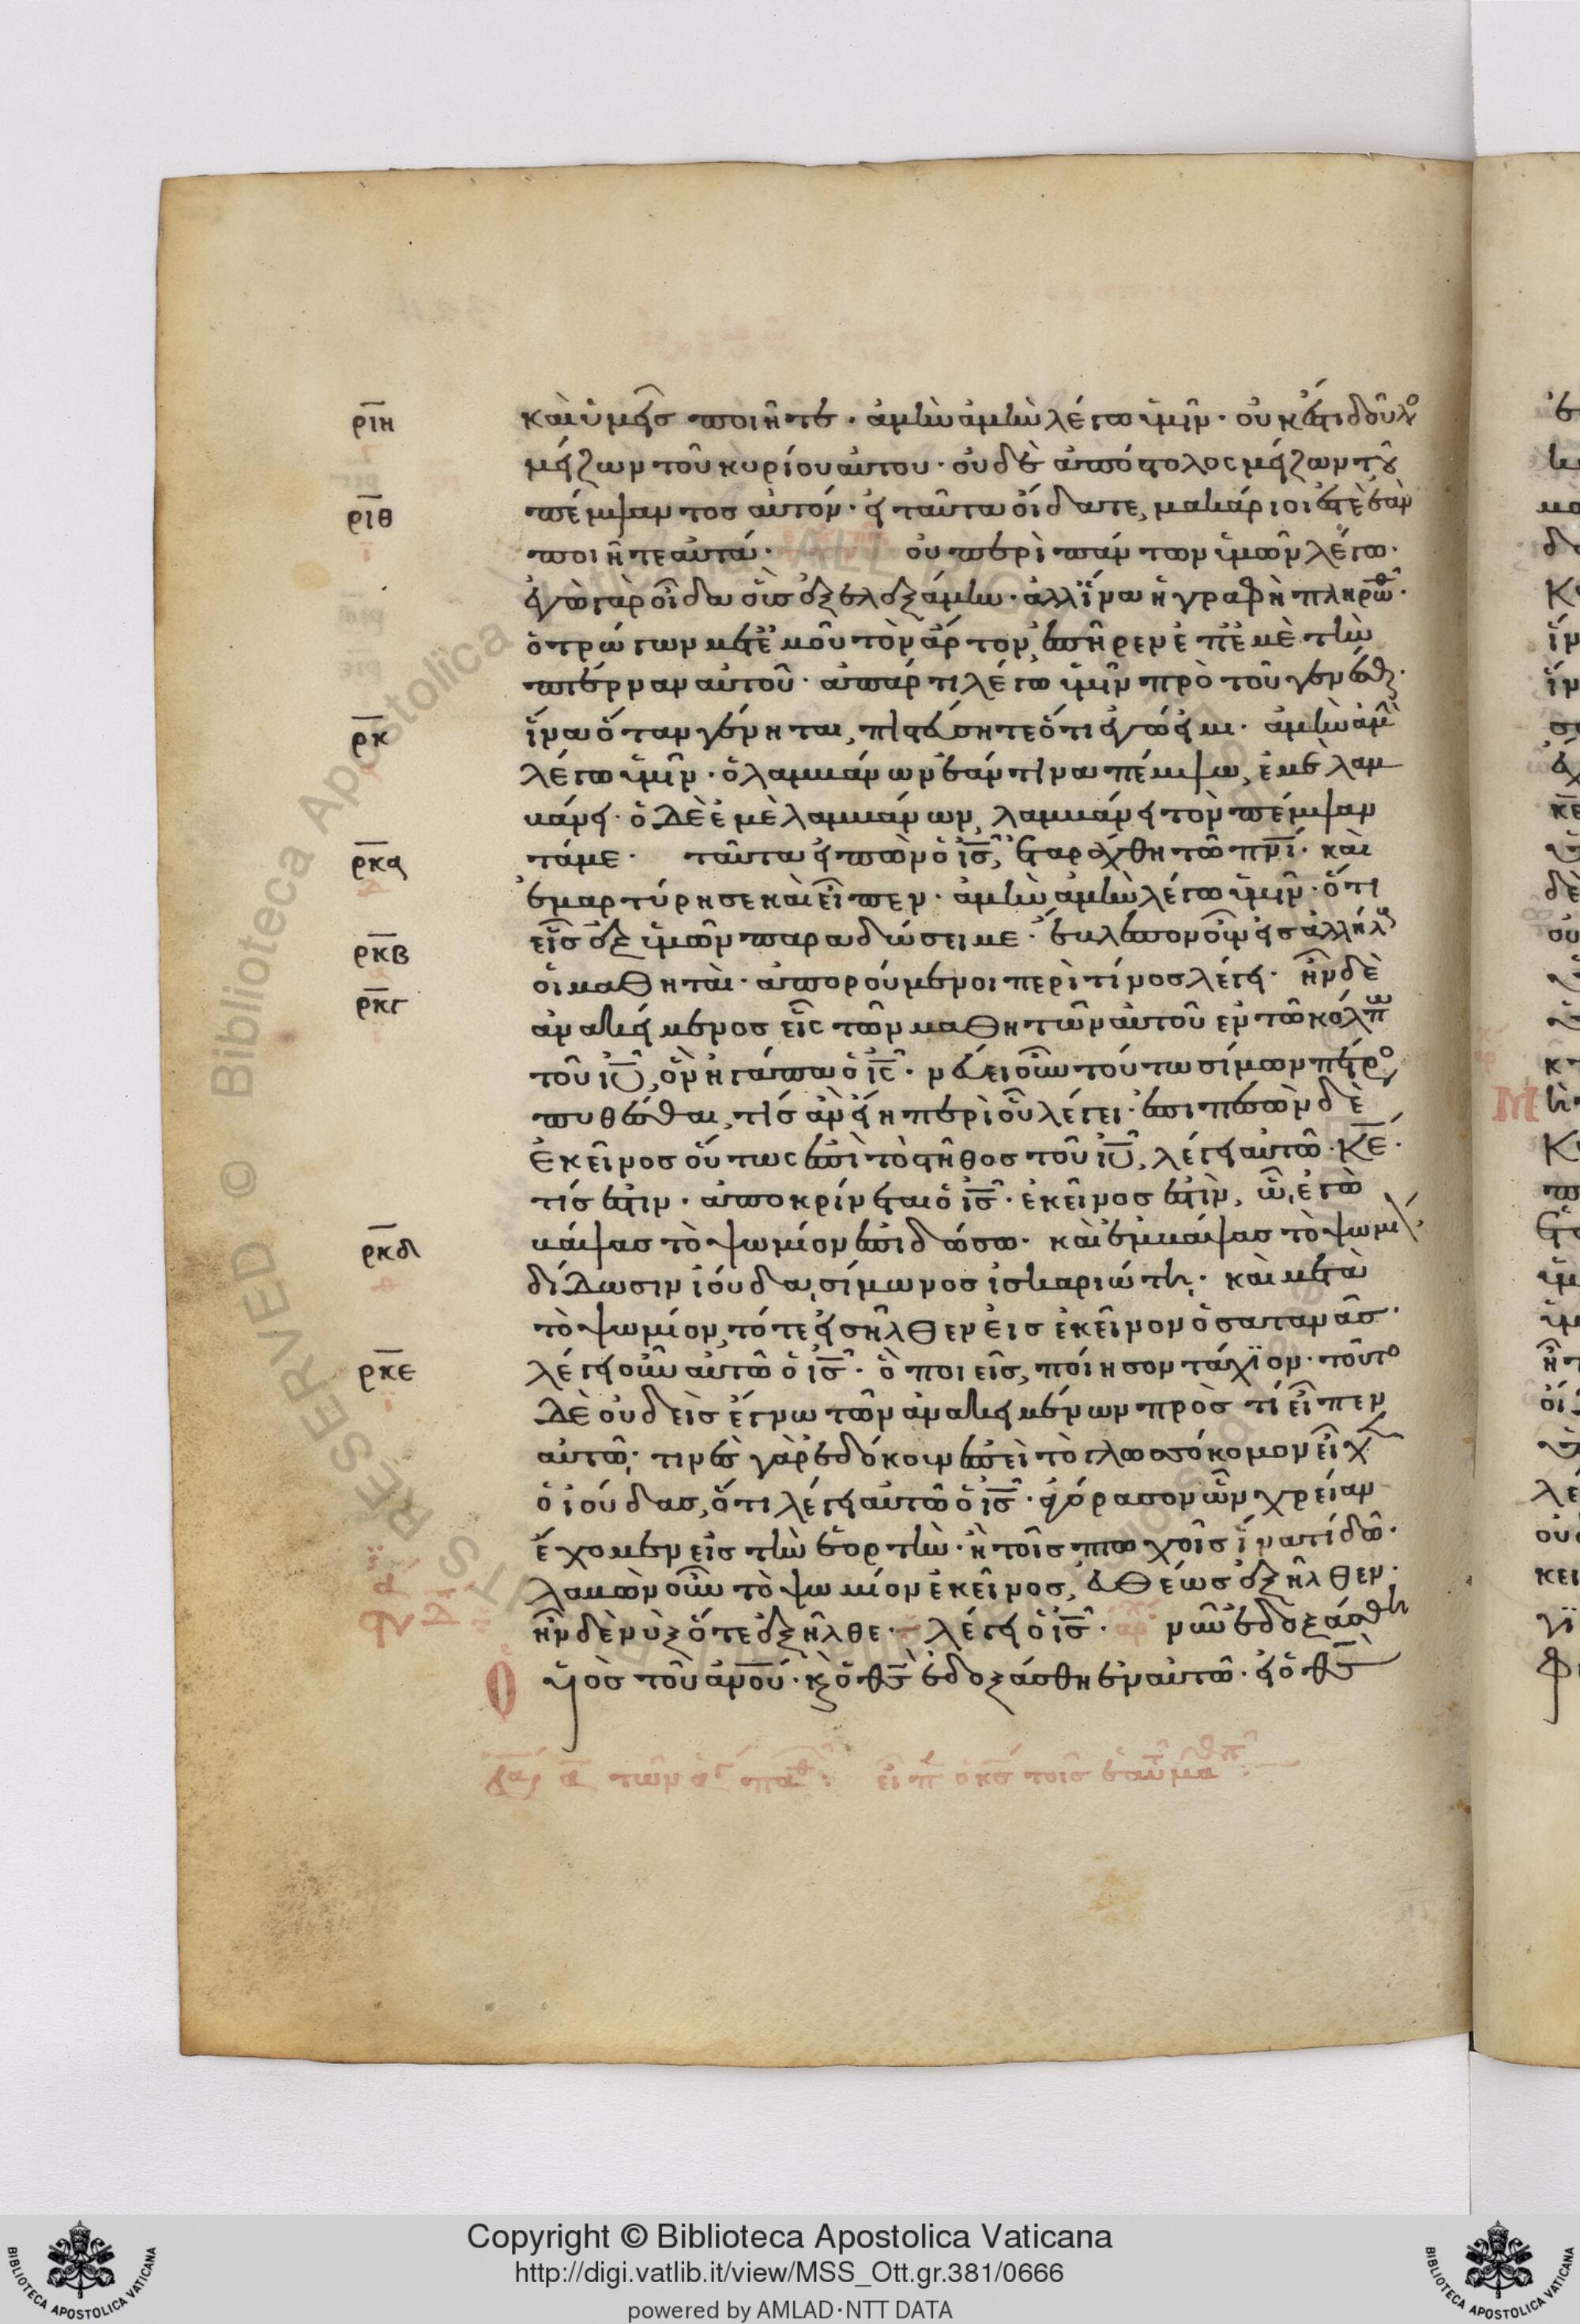 ριη
καὶ ὑμεῖς ποιῆτε. ἀμὴν ἀμὴν λέγω ὑμῖν. οὐκ ἔστι δοῦλο
μείζων τοῦ κυρίου αὐτου. οὐδὲ ἀπόστολος μείζων τȣ
ριθ
πέμψαντοσ αὐτόν. εἰ ταῦτα οἴδατε, μακάριοί ἐστὲ ἐὰν
ποιῆτε αὐτά. οὐ περὶ πάντων ὑμῶν λέγω.
ἐγὼ γὰρ οἶδα οὓσ ἐξελεξάμην. ἀλλ ἵνα ἡ γραφὴ πληρωθῆ.
ὁ τρώγων μετ ἐμοῦ τὸν ἄρτον, ἐπῆρεν ἐπ ἐμὲ τὴν
πτέρναν αὐτοῦ. ἀπάρτι λέγω ὑμῖν πρὸ τοῦ γενέσθαι.
ρκ
ἵνα ὅταν γένηται, πιστεύσητε ὅτι ἐγώ εἰμι. ἀμὴν ἀμὴν
λέγω ὑμῖν. ὁ λαμβάνων ἐάν τινα πέμψω, ἐμὲ λαμ
βάνει. ὁ δὲ ἐμὲ λαμβάνων, λαμβάνει τὸν πέμψαν
ρκα
τά με. ταῦτα εἰπὼν ὁ ἰσ, ἐταράχθη τῶ πνι. καὶ
ἐμαρτύρησε καὶ εἶπεν. ἀμὴν ἀμὴν λέγω ὑμῖν. ὅτι
ρκβ
εἷσ ἐξ ὑμῶν παραδώσει με. ἔβλεπον οὖν εἰσ ἀλλήλȣσ
οἱ μαθηταὶ. ἀπορούμενοι περὶ τίνοσ λέγει. ἦν δὲ
ρκγ
ἀνακείμενοσ εἷς τῶν μαθητῶν αὐτοῦ εν τῶ κόλπω
τοῦ ἰυ, ὃν ἠγάπα ὁ ἰς. νεύει οὖν τούτω σίμων πέτρο,
πυθέσθαι, τίσ ἂν εἴη περὶ οὗ λέγει. ἐπιπεσὼν δὲ
ἐκεῖνοσ οὕτως ἐπὶ τὸ στῆθοσ τοῦ ἰυ, λέγει αὐτῶ. κε.
τίσ ἐστιν. ἀποκρίνεται ὁ ἰσ. ἐκεῖνοσ ἐστὶν, ὧ ἐγὼ
ρκδ
βάψασ τὸ ψωμίον ἐπιδώσω. καὶ ἐμβάψασ τὸ ψωμι
δίδωσιν ἰούδα σίμωνοσ ἰσκαριώτη. καὶ μετὰ
τὸ ψωμίον, τότε εἰσῆλθεν εἰσ ἐκεῖνον ὁ σατανᾶσ.
ρκε
λέγει οὖν αὐτῶ ὁ ἰσ. ὃ ποιεῖσ, ποίησον τάχϊον. τοῦτο
δὲ οὐδεὶσ ἔγνω τῶν ἀνακειμένων πρὸσ τί εἶπεν
αὐτῶ. τινὲσ γὰρ ἐδόκουν ἐπεὶ τὸ γλωσσόκομον εἶχεν
ὁ ἰούδασ, ὅτι λέγει αὐτῶ ὁ ἰσ. ἀγόρασον ὧν χρείαν
ἔχομεν εἰσ τὴν ἑορτὴν. ἢ τοῖσ πτωχοῖσ ἵνα τι δῶ.
λαβὼν οὖν τὸ ψωμίον ἐκεῖνοσ, εὐθέωσ ἐξῆλθεν.
ἦν δὲ νὺξ ὅτε ἐξῆλθε. λέγει ὁ ἰσ. νῦν ἐδοξάσθη
Ο ὑιὸσ τοῦ ἀνου. κὶ ὁ θσ ἐδοξάσθη ἐν αὐτῶ. εἰ ὁ θσ
Copyright © Biblioteca Apostolica Vaticana
http://digi.vatlib.it/view/MSS_Ott.gr.381/0666
powered by AMLAD·NTT DATA